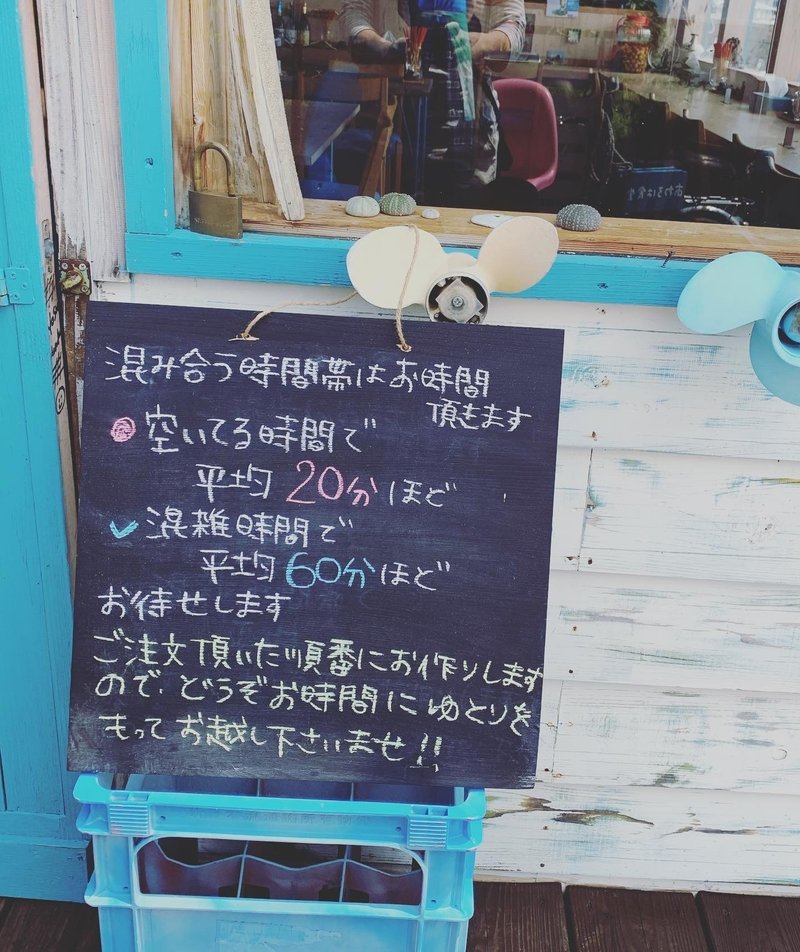 混み合う時間帯はお時間
頂きます
空いてる時間で
平均 20分ほど
混雑時間で
平均 60分ほど
お待せします
ご注文頂いた順番にお作りします
ので、どうぞお時間にゆとりを
もってお越し下さいませ!!